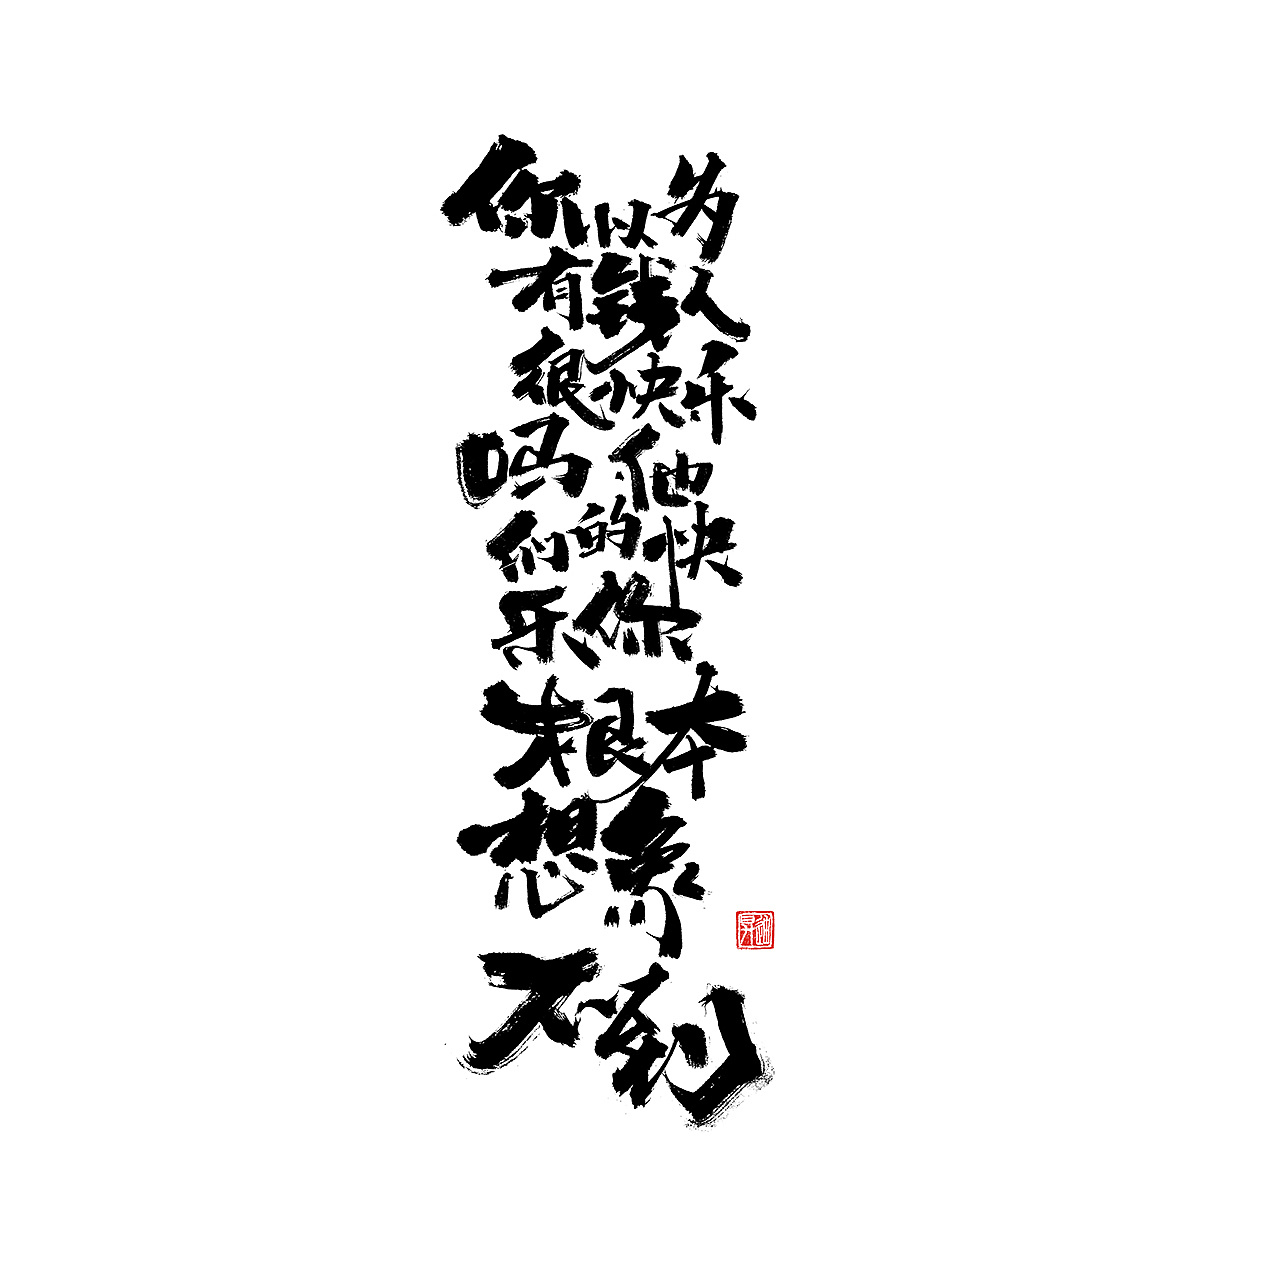 你以为
有钱人
很快乐
吗他
们的快
乐你
根本
想象
不到